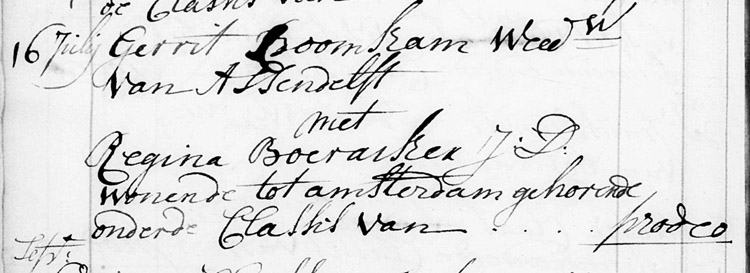 de Classis van
16 July Gerrit Boomkam Weedr
van Assendelft
met
Regina Boeraskex J: D:
wonende tot amsterdam gehorende
onder de Classis van . . . . prodeo
Sept: